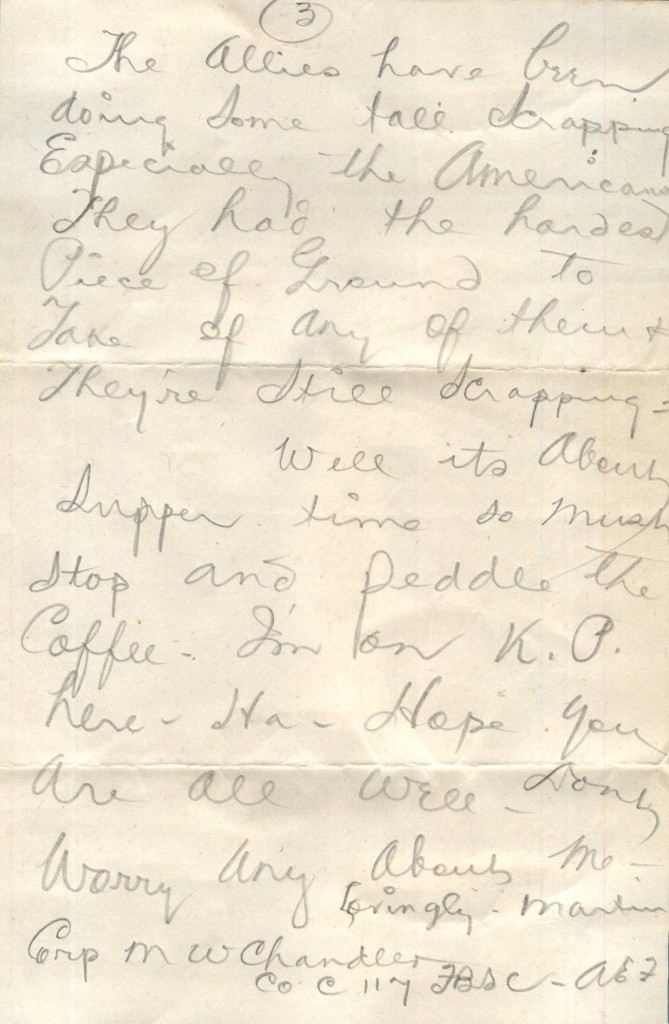 3
The Allies have been
doing some tall scrapping
Especially the Americans
They had the hardest
Piece of Ground to
Take of any of them +
They're Still Scrapping -
Well its About
Supper time so must
stop and peddle the
Coffee - I'm on K. P.
here - Ha - Hope you
are all well - Dont
Worry Any About Me -
Lovingly - Martin
Corp M W Chandler
Co C 117 FBSC - AEF